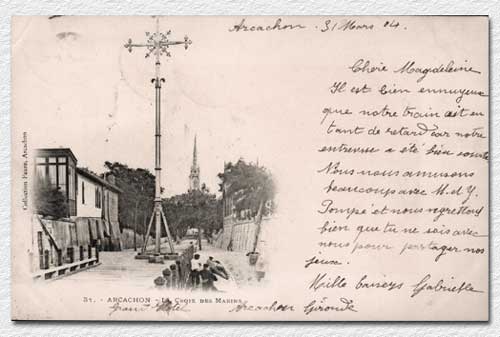 Arcachon. 31 Mars 04
Chère Magdeleine
Il est bien ennuyeux
que notre train ait eu
tant de retard car notre
entrevue a été bien courte
Nous nous amusons
beaucoup avec M. d Y.
Pompé et nous regrettons
bien que tu ne sois avec
nous pour partager nos
jeux.
Mille baisers Gabrielle
Collection Faure, Arcachon
31. - ARCACHON - La Croix des Marins
Grand Hotel Arcachon Gironde